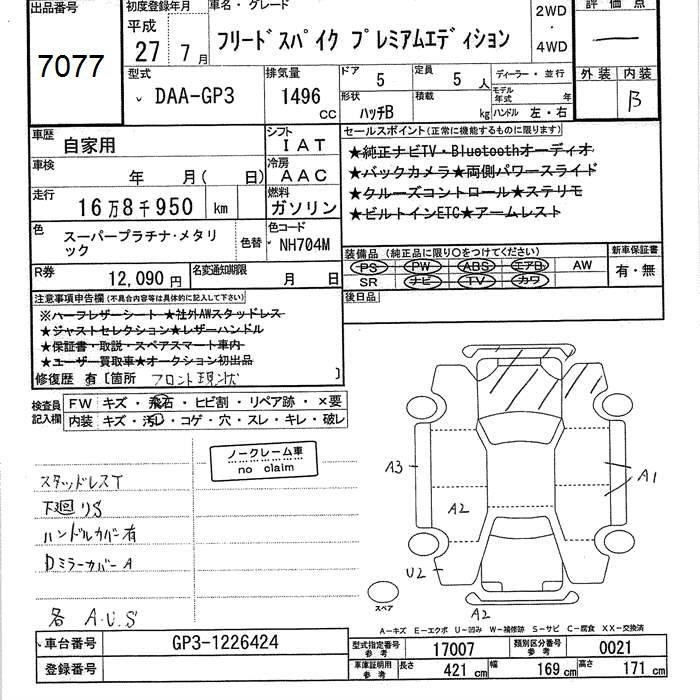 出品番号
7077
初度登録年月
平成
27年 7月
車名・グレード
フリードスパイク プレミアムエディション
2WD
・
4WD
評価点
―
外装 内装
B
型式
DAA-GP3
排気量
1496 CC
ドア 5
定員 5 人
形状 ハッチB
積載 kg
ディーラー・並行
モデル年式 年
ハンドル 左・右
車歴 自家用
シフト IAT
車検 年 月( 日)
冷房 AAC
走行 16万8千950 km
燃料 ガソリン
色 スーパープラチナ・メタリック
色替
色コード NH704M
R券 12,090円
名変通知期限 月 日
セールスポイント(正常に機能するものに限ります)
★純正ナビTV・Bluetoothオーディオ
★バックカメラ★両側パワースライド
★クルーズコントロール★ステリモ
★ビルトインETC★アームレスト
装備品(純正品に限り○をつけてください)
PS PW ABS エアB AW
SR ナビ TV カワ
新車保証書
有・無
後日品
注意事項申告欄(不具合内容等は具体的に記入して下さい)
※ハーフレザーシート★社外AWスタッドレス
★ジャストセレクション★レザーハンドル
★保証書・取説・スペアスマート車内
★ユーザー買取車★オークション初出品
修復歴 有〔箇所 フロント現状〕
検査員記入欄
FW キズ・飛石・ヒビ割・リペア跡・×要
内装 キズ・汚レ・コゲ・穴・スレ・キレ・破レ
ノークレーム車
no claim
スタッドレスT
下廻りS
ハンドルカバー有
Dミラーカバー A
各 A.U.S
A3
A2
A1
U2
A2
スペア
A-キズ E-エクボ U-凹み W-補修跡 S-サビ C-腐食 XX-交換済
車台番号 GP3-1226424
登録番号
型式指定番号参考 17007
類別区分番号参考 0021
車庫証明用参考 長さ 421cm 幅 169cm 高さ 171cm